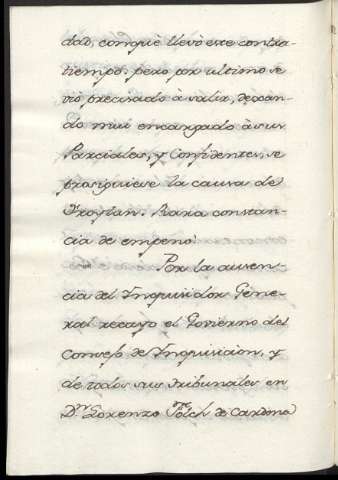 dad, conque llevó este contra-
tiempo. pero por ultimo se
vió precisado à salir, dexan-
do mui encargado à sus
Parciales, y Confidentes, se
prosiguiese la causa de
Froylan. Rara constan-
cia de empeno!
Por la ausen-
cia del Inquisidor Gene-
ral recayo el Govierno del
Consejo de Inquisicion, y
de todos sus tribunales en
Dn Lorenzo Folch de Cardona